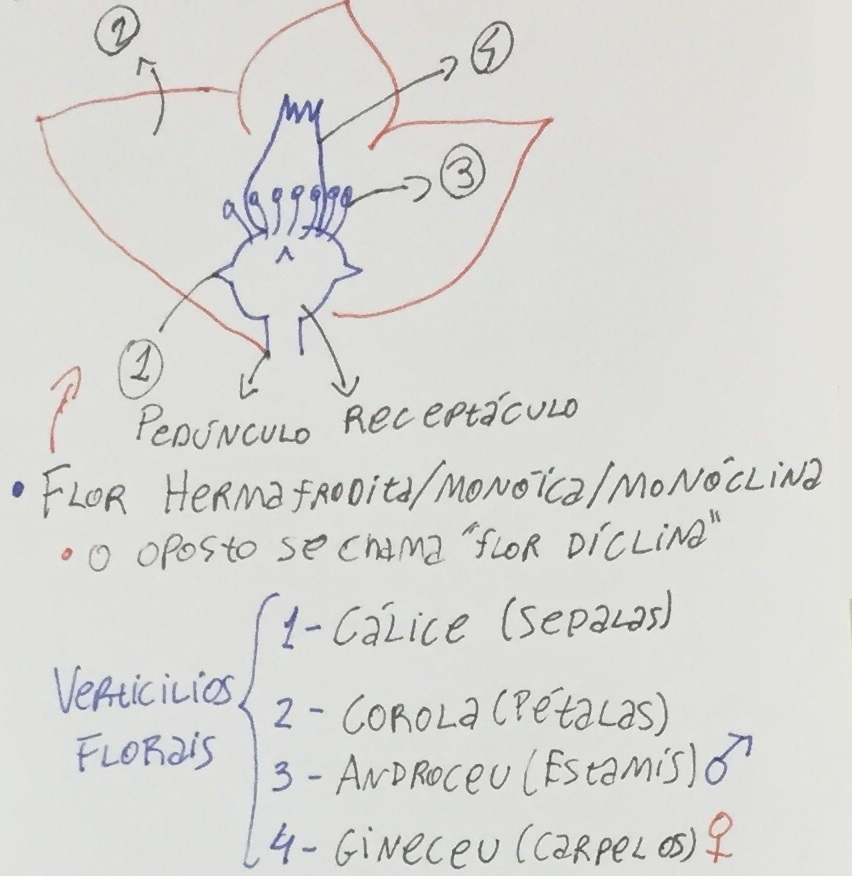 2
4
3
1
PEDÚNCULO RECEPTÁCULO
• FLOR HERMAFRODITA/MONOÏCA/MONÓCLINA
• O OPOSTO SE CHAMA "FLOR DÍCLINA"
VERTICILIOS FLORAIS
1- CÁLICE (SEPALAS)
2 - COROLA (PÉTALAS)
3 - ANDROCEU (ESTAMÍS) ♂
4- GINECEU (CARPELOS) ♀